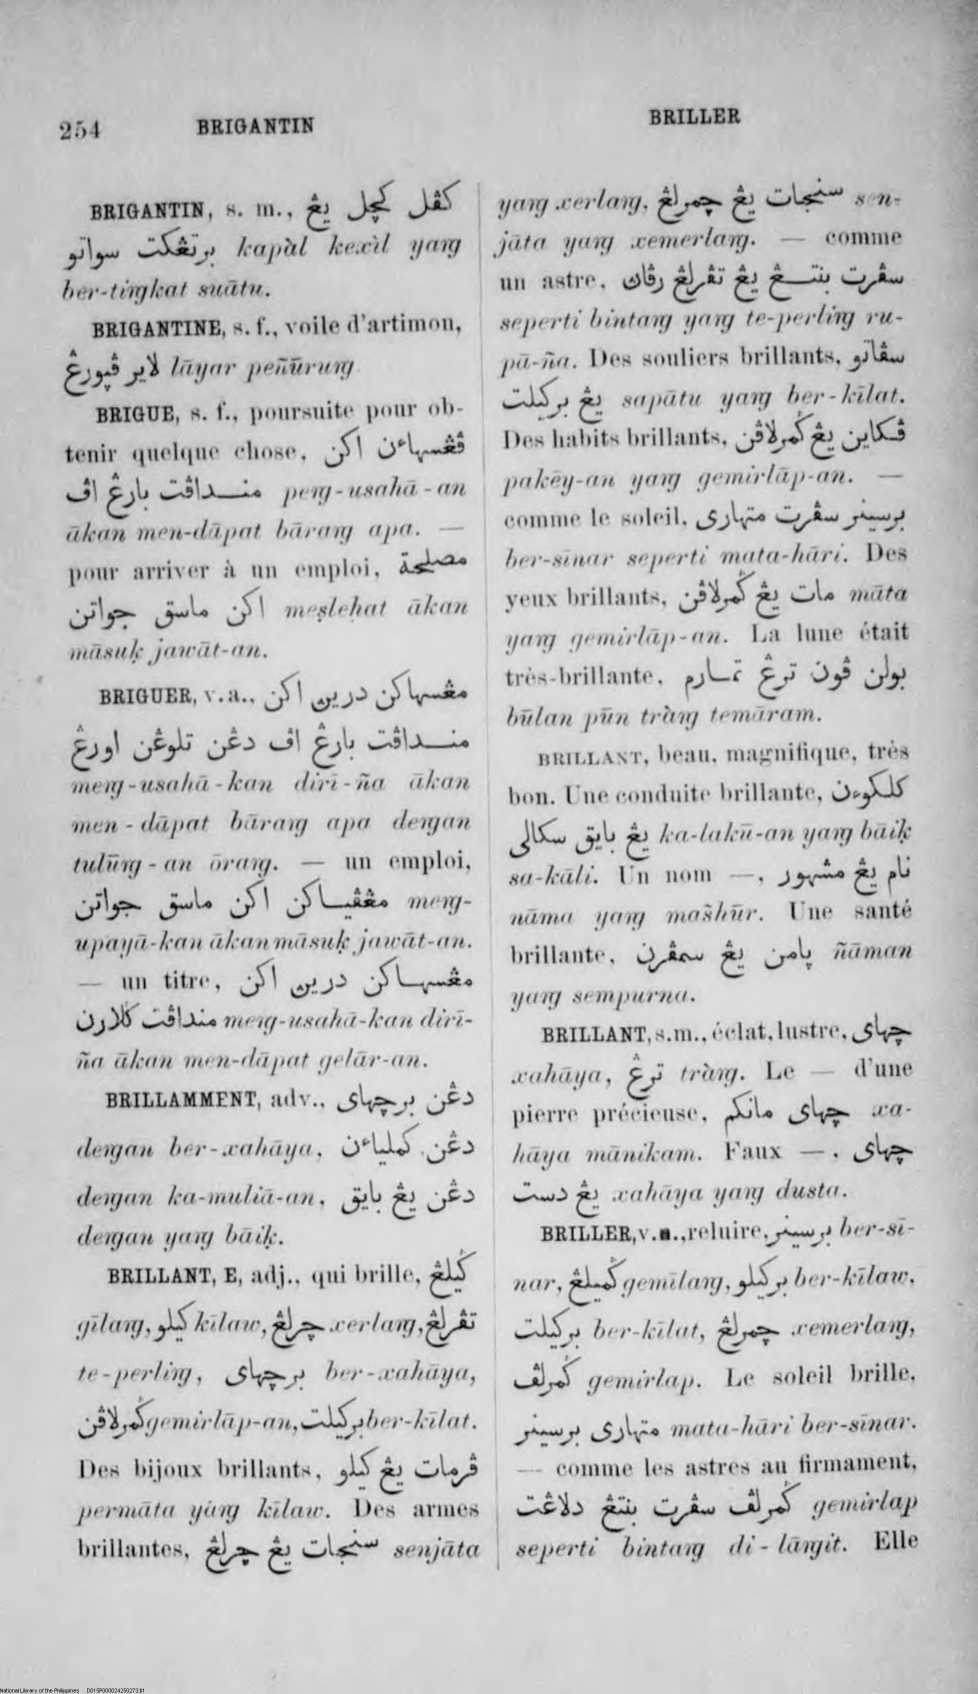 254
BRIGANTIN
BRILLER
BRIGANTIN, s. m., كڤل كچل يڠ
برتڠكت سواتو kapàl kexìl yaŋ
ber-tiŋkat suātu.
BRIGANTINE, s. f., voile d'artimon,
لاير ڤڽورڠ lāyar peñūruŋ
BRIGUE, s. f., poursuite pour ob-
tenir quelque chose, ڤڠسهاءن اكن
منداڤت بارڠ اڤ peŋ-usahā-an
ākan men-dāpat bāraŋ apa. —
pour arriver à un emploi, مصلحة
اكن ماسق جواتن meṣleḥat ākan
māsuḳ jawāt-an.
BRIGUER, v. a., مڠسهاكن درين اكن
منداڤت بارڠ اڤ دڠن تلوڠن اورڠ
meŋ-usahā-kan dirī-ña ākan
men-dāpat bāraŋ apa deŋan
tulūŋ-an ōraŋ. — un emploi,
مڠڤياكن اكن ماسق جواتن meŋ-
upayā-kan ākan māsuḳ jawāt-an.
— un titre, مڠسهاكن درين اكن
منداڤت ݢلارن meŋ-usahā-kan dirī-
ña ākan men-dāpat gelār-an.
BRILLAMMENT, adv., دڠن برچهاى
deŋan ber-xahāya, دڠن كملياءن
deŋan ka-muliā-an, دڠن يڠ بايق
deŋan yaŋ bāiḳ.
BRILLANT, E, adj., qui brille, ݢيلڠ
gīlaŋ, كيلو kīlaw, چرلڠ xerlaŋ, تڤرلڠ
te-perliŋ, برچهاى ber-xahāya,
ݢمرلاڤن gemirlāp-an, بركيلت ber-kīlat.
Des bijoux brillants, ڤرمات يڠ كيلو
permāta yàŋ kīlaw. Des armes
brillantes, سنجات يڠ چرلڠ senjāta
yaŋ xerlaŋ, سنجات يڠ چمرلڠ sen-
jāta yaŋ xemerlaŋ. — comme
un astre, سڤرت بنتڠ يڠ تڤرلڠ رڤاڽ
seperti bintaŋ yaŋ te-perliŋ ru-
pā-ña. Des souliers brillants, سڤاتو
يڠ بركيلت sapātu yaŋ ber-kīlat.
Des habits brillants, ڤكاين يڠ ݢمرلاڤن
pakēy-an yaŋ gemirlāp-an. —
comme le soleil, برسينر سڤرت متهارى
ber-sīnar seperti mata-hāri. Des
yeux brillants, مات يڠ ݢمرلاڤن māta
yaŋ gemirlāp-an. La lune était
très-brillante, بولن ڤون ترڠ تمارم
būlan pūn tràŋ temāram.
BRILLANT, beau, magnifique, très
bon. Une conduite brillante, كلكوءن
يڠ بايق سكالى ka-lakū-an yaŋ bāiḳ
sa-kāli. Un nom —, نام يڠ مشهور
nāma yaŋ mašhūr. Une santé
brillante, ڽامن يڠ سمڤرن ñāman
yaŋ sempurna.
BRILLANT, s. m., éclat, lustre, چهاى
xahāya, ترڠ tràŋ. Le — d'une
pierre précieuse, چهاى مانكم xa-
hāya mānikam. Faux —, چهاى
يڠ دست xahāya yaŋ dusta.
BRILLER, v. n., reluire, برسينر ber-sī-
nar, ݢميلڠ gemīlaŋ, بركيلو ber-kīlaw,
بركيلت ber-kīlat, چمرلڠ xemerlaŋ,
ݢمرلڤ gemirlap. Le soleil brille,
متهارى برسينر mata-hāri ber-sīnar.
— comme les astres au firmament,
ݢمرلڤ سڤرت بنتڠ دلاڠت gemirlap
seperti bintaŋ di-lāŋit. Elle
National Library of the Philippines